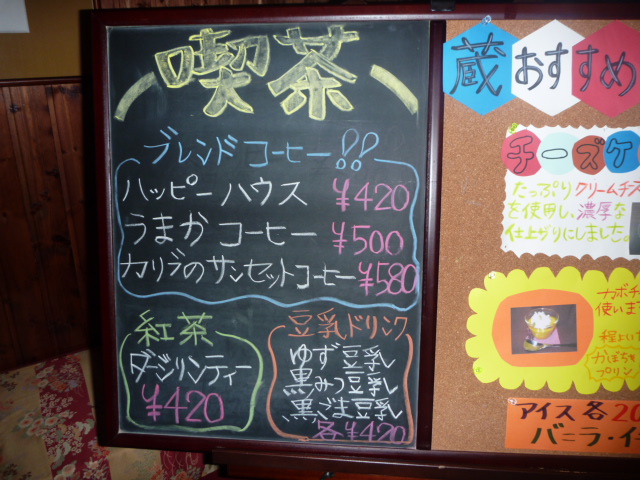 喫茶
ブレンドコーヒー!!
ハッピーハウス ¥420
うまかコーヒー ¥500
カリブのサンセットコーヒー ¥580
紅茶
ダージリンティー
¥420
豆乳ドリンク
ゆず豆乳
黒みつ豆乳
黒ごま豆乳
各¥420
蔵おすすめ
チーズケ
たっぷりクリームチーズ
を使用し、濃厚な
仕上がりにしました。
カボチ
使いま
程よい
かぼちゃ
プリン
アイス各20
バニラ・イ